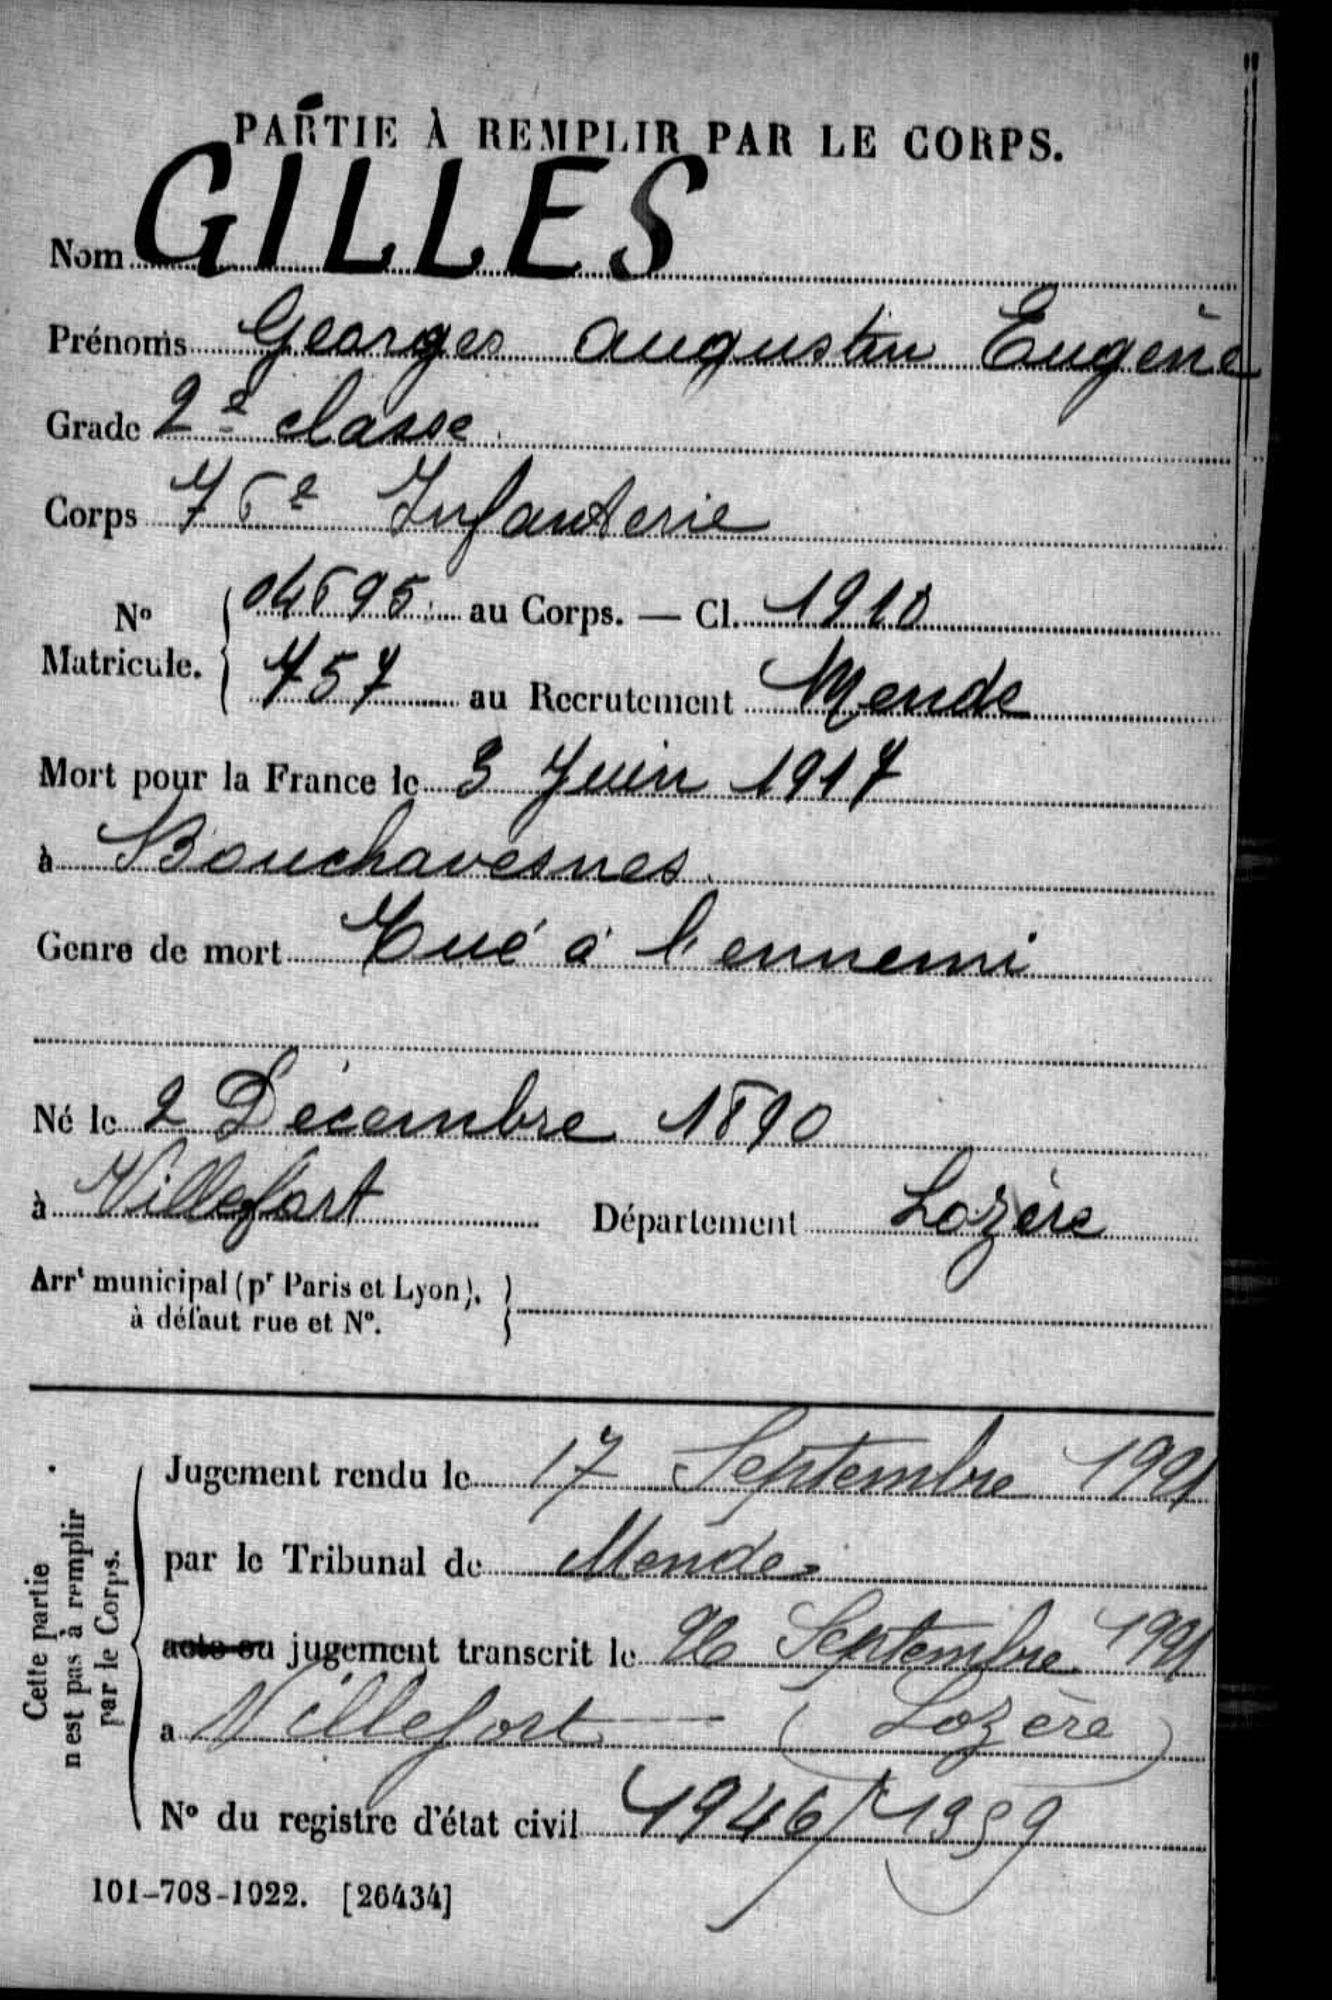 PARTIE À REMPLIR PAR LE CORPS.
Nom GILLES
Prénoms Georges Augustin Eugène
Grade 2e classe
Corps 76e Infanterie
No Matricule. 04695 au Corps. — Cl. 1910
757 au Recrutement Mende
Mort pour la France le 3 Juin 1917
à Bouchavesnes
Genre de mort Tué à l'ennemi
Né le 2 Décembre 1890
à Villefort Département Lozère
Arrt municipal (pr Paris et Lyon),
à défaut rue et No.
Cette partie
n'est pas à remplir
par le Corps.
Jugement rendu le 17 Septembre 1921
par le Tribunal de Mende
acte ou jugement transcrit le 26 Septembre 1921
a Villefort — (Lozère)
No du registre d'état civil 1946/1959
101-708-1922. [26434]